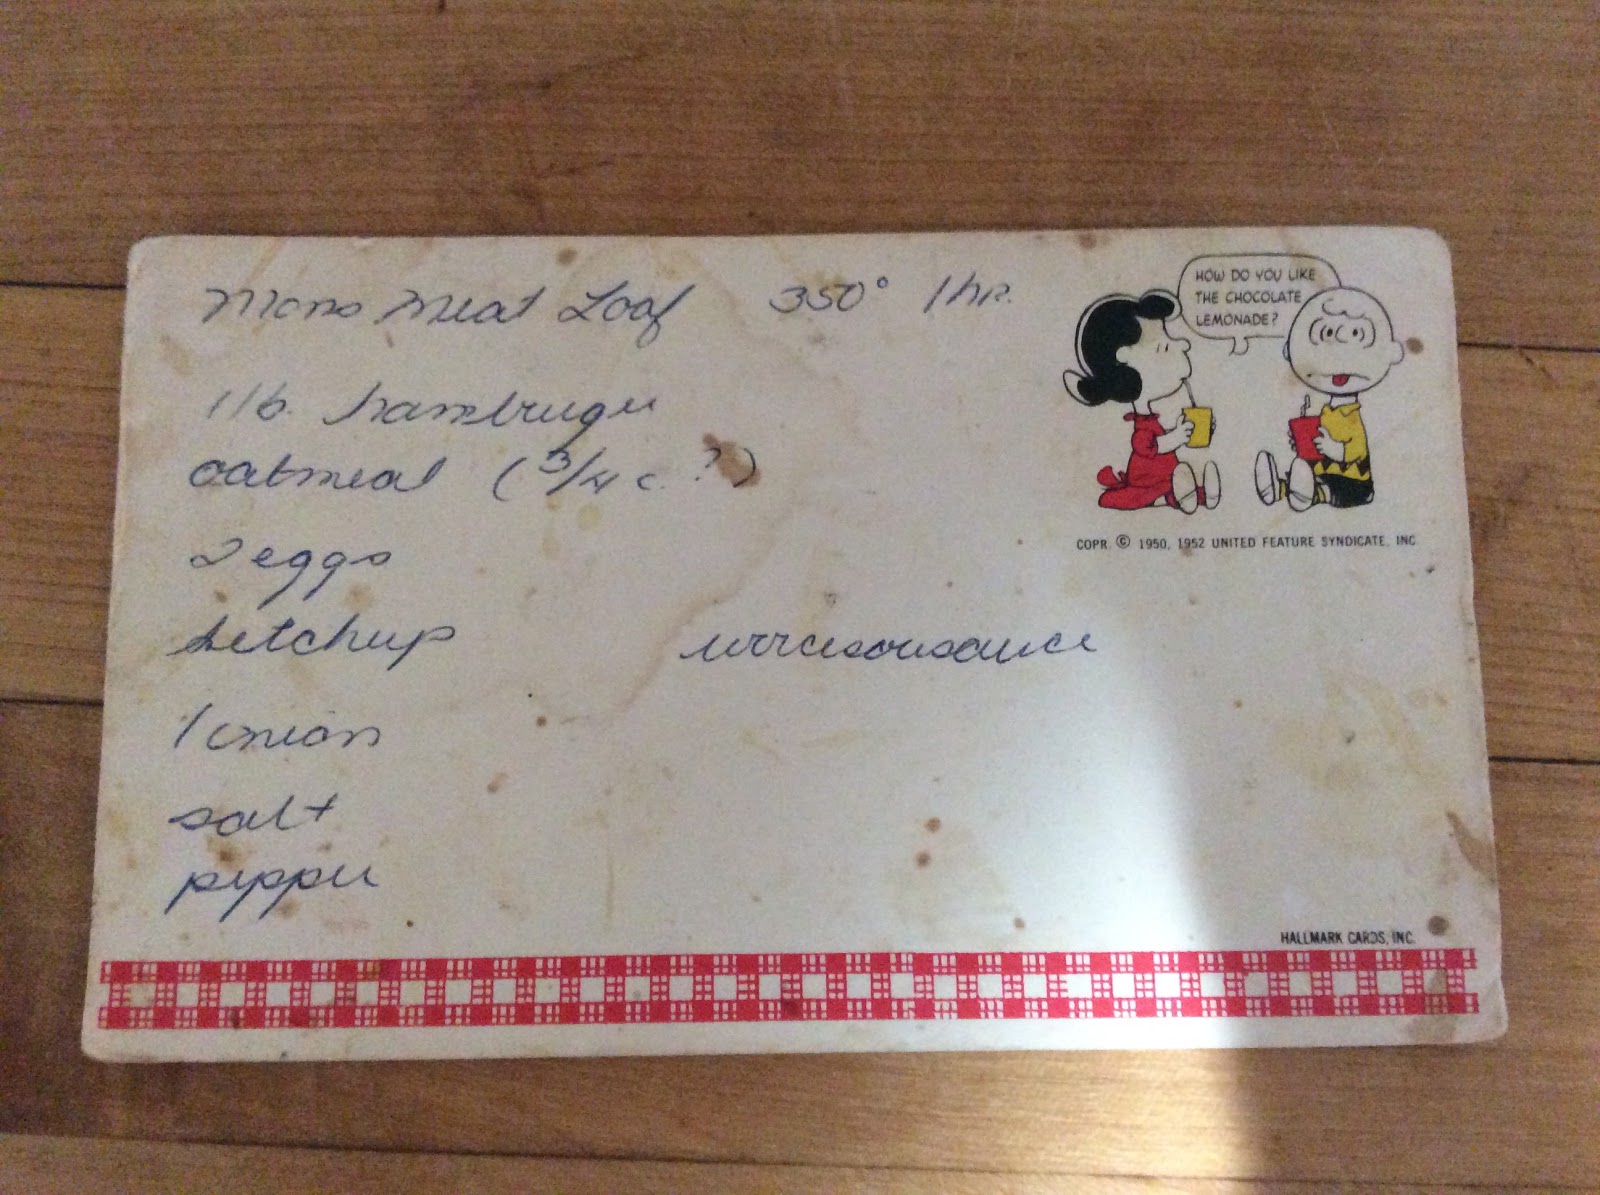 Moms Meat Loaf 350° 1 hr.
HOW DO YOU LIKE
THE CHOCOLATE
LEMONADE?
1 lb. hambruger
oatmeal (3/4 c. ?)
2 eggs
COPR. © 1950, 1952 UNITED FEATURE SYNDICATE, INC
ketchup worcesoursauce
1 onion
salt
pepper
HALLMARK CARDS, INC.